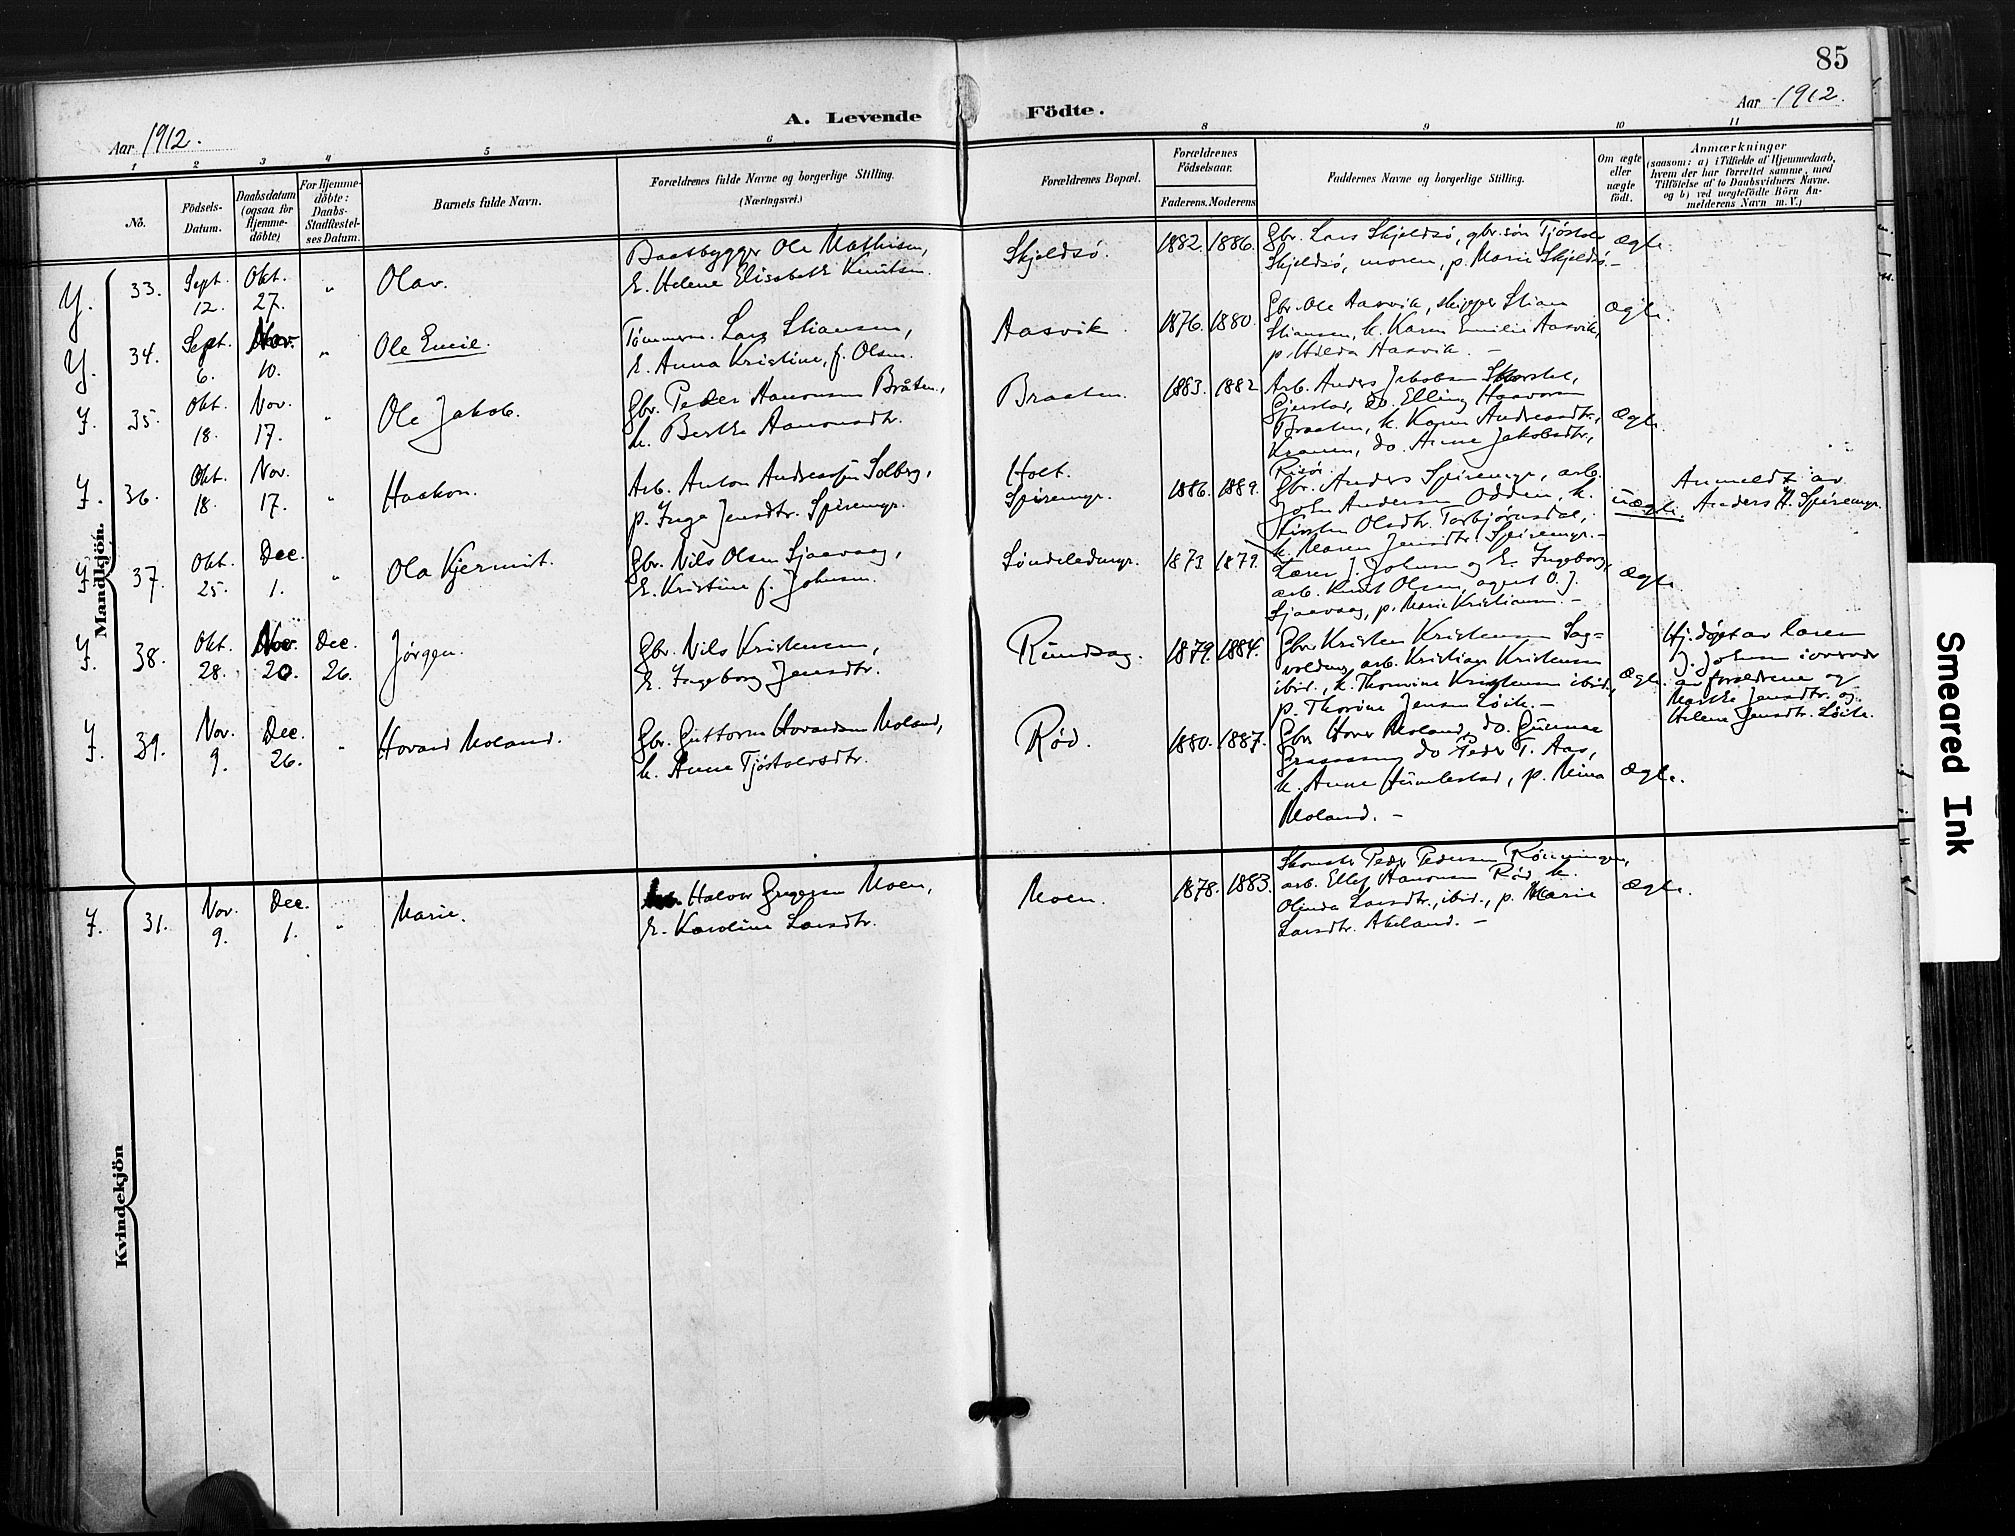 85
Aar 1912.
A. Levende Födte.
Aar 1912.
1 2 3 4 5 6 8 9 10 11
No.
Födsels-Datum.
Daabsdatum (ogsaa for Hjemme-döbte)
For Hjemme-döbte: Daabs-Stadfæstel-ses Datum.
Barnets fulde Navn.
Forældrenes fulde Navne og borgerlige Stilling.
(Næringsvei.)
Forældrenes Bopæl.
Forældrenes Födselsaar.
Faderens. Moderens
Faddernes Navne og borgerlige Stilling.
Om ægte eller uægte födt.
Anmærkninger
(saasom: a) i Tilfælde af Hjemmedaab,
hvem der har forrettet samme, med
Tilföielse af to Daabsvidners Navne.
og b) ved uægtefödte Börn An-
melderens Navn m. V.)
Mandkjön.
Y. 33. Sept. 12. Okt. 27. " Olav.
Baatbygger Ole Mathisen,
E. Helene Elisabeth Knutsen.
Skjeldsö. 1882. 1886.
Gbr. Lars Skjeldsö, gbr. sön Tjöstolv
Skjeldsö, moren, p. Marie Skjeldsö.–
ægte.
Y. 34. Sept. 6. Nov. 10. " Ole Emil.
Tömmerm. Lars Stiansen,
E. Anna Kristine, f. Olsen.
Aasvik. 1876. 1880.
Gbr. Ole Aasvik, skipper Stian
Stiansen, k. Karen Emilie Aasvik,
p. Hilda Aasvik. –
ægte.
F. 35. Okt. 18. Nov. 17. " Ole Jakob.
Gbr. Peder Aanonsen Bråten,
k. Berthe Aanonsdtr.
Braaten. 1883. 1882
Arb. Anders Jakobsen
Gjerstad, do. Elling Haavorsen
Braaten, k. Karen Andreasdtr.,
do. Anne Jakobsdtr,
Risör.
ægte.
F. 36. Okt. 18. Nov. 17. " Haakon.
Arb. Anton Andreassen Solberg,
p. Inga Jensdtr. Spiremyr.
Holt.
Spiremyr. 1886. 1889.
Gbr. Anders Spiremyr, arb.
John Andersen Odden, k.
Kirsten Olsdtr. Torbjörnsdal,
k. Maren Jensdtr. Spiremyr.–
uægte.
Anmeldt av
Anders H. Spiremyr.
F. 37. Okt. 25. Dec. 1. " Ola Kjermit.
Gbr. Nils Olsen Sjaavaag,
E. Kristine f. Johnsen.
Søndeledmyr. 1873 1879.
Lærer J. Johnsen og E. Ingeborg,
arb. Knut Olsen, agent O. J.
Sjaavaag, p. Marie Kristiansen. –
ægte.
F. 38. Okt. 28. Nov. 20. Dec. 26. Jørgen.
Gbr. Nils Kristensen,
E. Ingeborg Jensdtr.
Rundsag. 1879. 1884.
Gbr Kristen Kristensen Sag-
volden, arb. Kristian Kristensen
ibid., k. Thorvine Kristensen ibid.,
p. Thorine Jensen Löite. –
ægte.
Hj.döpt av lærer
J. Johnsen i nærvær
av forældrene og
Marthe Jensdtr. og
Helene Jensdtr. Löite.
F. 39. Nov. 9. Dec. 26. " Hovard Moland.
Gbr. Guttorm Hovardsen Moland,
k. Anne Tjöstolvsdtr.
Rød. 1880. 1887.
Gbr. Hover Moland, do. Gunnar
do Peder T. Aas,
k. Anne Humlestad, p. Mina
Moland. –
ægte.
Kvindekjön
F. 31. Nov. 9. Dec. 1. " Marie.
Halvor Gregersen Moen,
E. Karoline Larsdtr.
Moen. 1878. 1883.
Skomaker Peder Pedersen Rönningen,
arb. Ellef Aanonsen Röd, k.
Olinda Larsdtr., ibid., p. Marie
Larsdtr. Akeland. –
ægte.
Smeared Ink